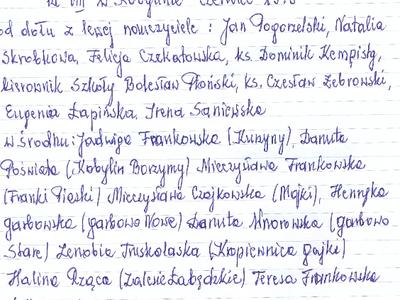 kl VIII w Kobylinie czerwiec
od dołu z lewej nauczyciele: Jan Pogorzelski, Natalia
Skrobkowa, Felicja Czekatowska, ks. Dominik Kempisty,
kierownik Szkoły Bolesław Płoński, ks. Czesław Żebrowski,
Eugenia Łapińska, Irena Saniewska
w środku: Jadwiga Frankowska (Kurzyny), Danuta
Poświata (Kobylin Borzymy) Mieczysława Frankowska
(Franki Piaski) Mieczysława Czajkowska (Mojki), Henryka
Garbowska (Garbowo Nowe) Danuta Mnorowska (Garbowo
Stare) Zenobia Truskolaska (Kropiewnica Gajki)
Halina Rząca (Zalesie Łabędzkie) Teresa Frankowska